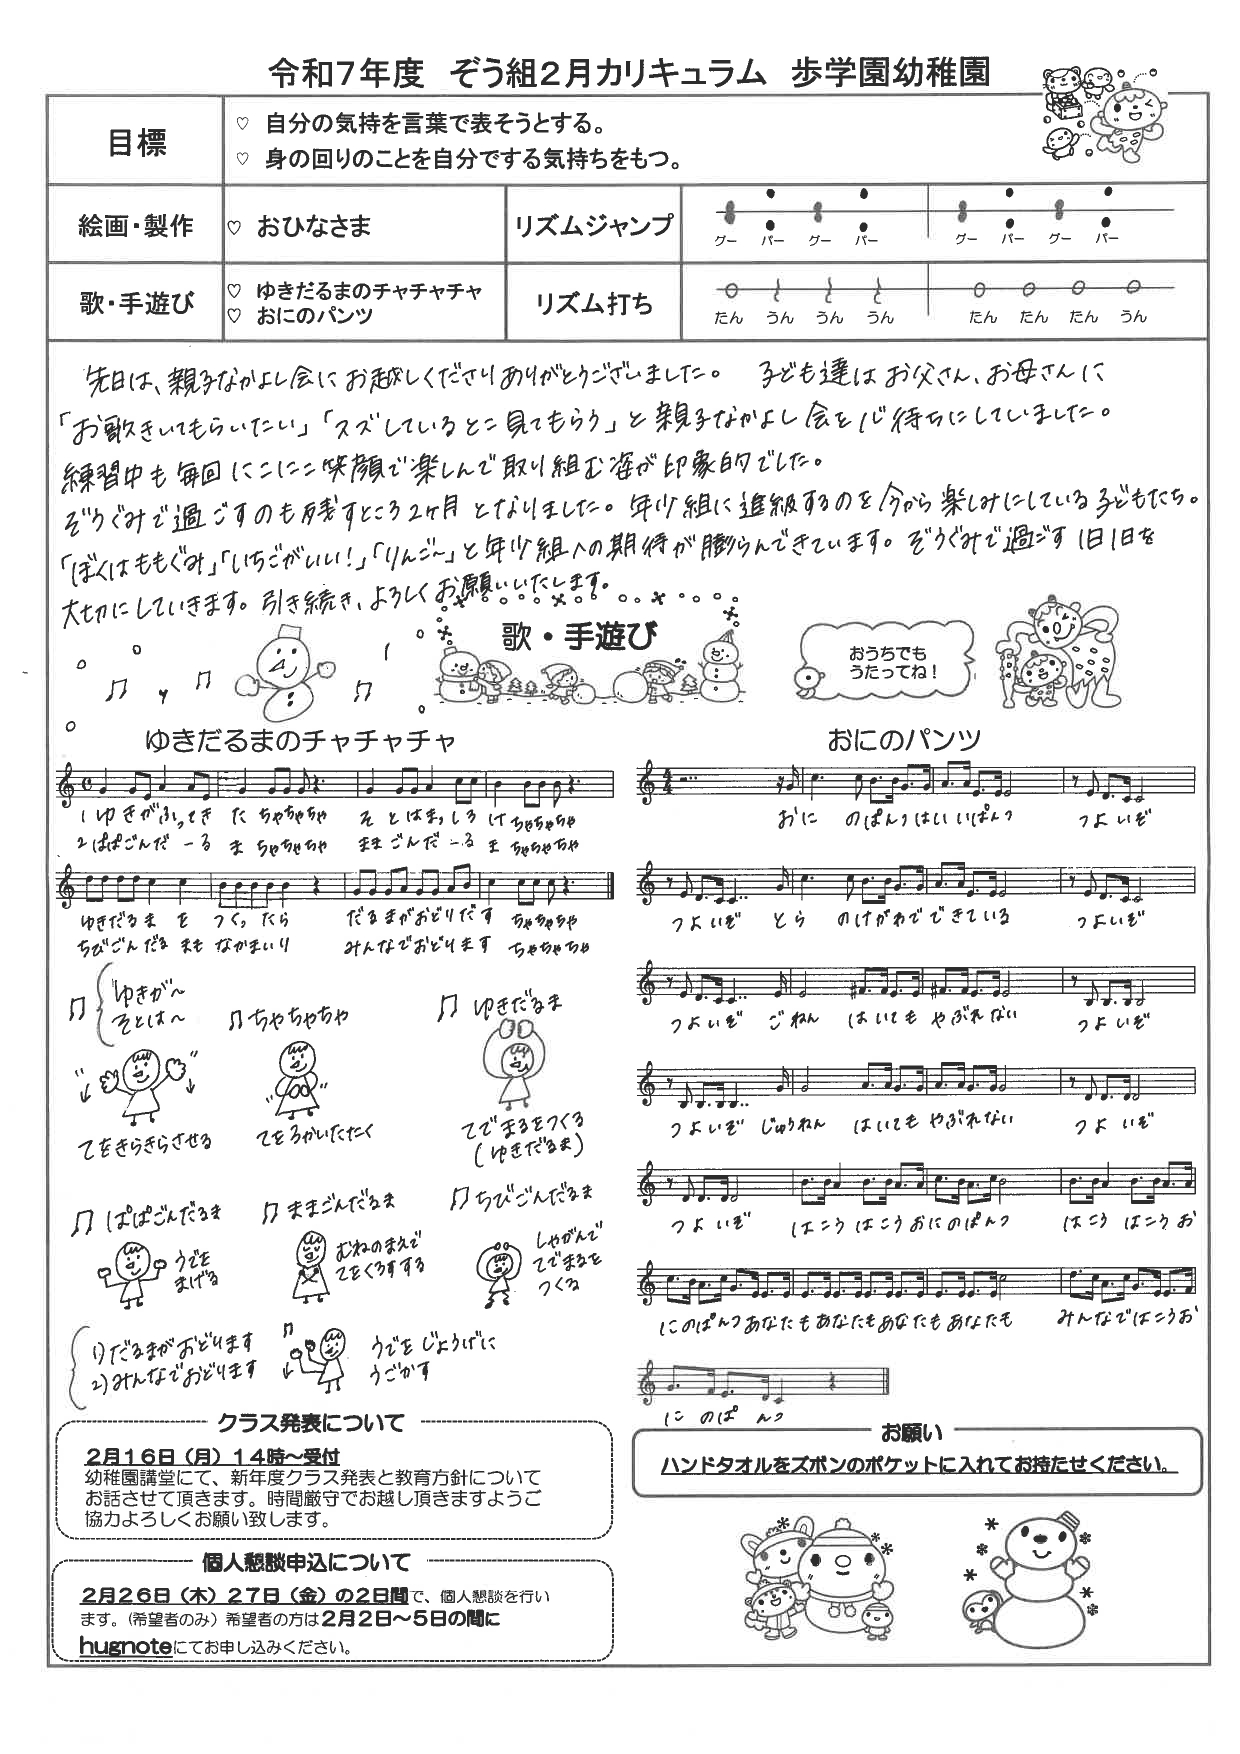 令和７年度　ぞう組２月カリキュラム　歩学園幼稚園
目標
♡ 自分の気持を言葉で表そうとする。
♡ 身の回りのことを自分でする気持ちをもつ。
絵画・製作
♡ おひなさま
リズムジャンプ
グー パー グー パー グー パー グー パー
歌・手遊び
♡ ゆきだるまのチャチャチャ
♡ おにのパンツ
リズム打ち
たん うん うん うん たん たん たん うん
先日は、親子なかよし会にお越しくださりありがとうございました。 子ども達はお父さん、お母さんに
「お歌きいてもらいたい」「スズしているとこ見てもらう」と親子なかよし会を心待ちにしていました。
練習中も毎回にこにこ笑顔で楽しんで取り組む姿が印象的でした。
ぞうぐみで過ごすのも残すところ2ヶ月となりました。年少組に進級するのを今から楽しみにしている子どもたち。
「ぼくはももぐみ」「いちごがいい！」「りんご〜」と年少組への期待が膨らんできています。ぞうぐみで過ごす1日1日を
大切にしていきます。引き続き、よろしくお願いいたします。
歌・手遊び
おうちでも
うたってね！
ゆきだるまのチャチャチャ
1 ゆきがふってき た ちゃちゃちゃ そ とはまっしろ け ちゃちゃちゃ
2 ぱぱごんだ ーる ま ちゃちゃちゃ ままごんだ ーる ま ちゃちゃちゃ
ゆきだるま を つくったら だるまがおどりだす ちゃちゃちゃ
ちびごんだるまも なかまいり みんなでおどります ちゃちゃちゃ
♫ ゆきが〜
そとは〜
♫ ちゃちゃちゃ
♫ ゆきだるま
てをきらきらさせる
てを3かいたたく
てでまるをつくる
(ゆきだるま)
♫ ぱぱごんだるま
♫ ままごんだるま
♫ ちびごんだるま
うでを
まげる
むねのまえで
てをくろすする
しゃがんで
てでまるを
つくる
1)だるまがおどります
2)みんなでおどります
うでをじょうげに
うごかす
おにのパンツ
おに のぱんつはいいぱんつ つよいぞ
つよいぞ とら のけがわでできている つよいぞ
つよいぞ ごねん はいても やぶれない つよいぞ
つよいぞ じゅうねん はいても やぶれない つよ いぞ
つよ いぞ はこう はこう おにのぱんつ はこう はこう お
にのぱんつ あなたも あなたも あなたも あなたも みんなではこうお
に のぱ んつ
クラス発表について
２月１６日（月）１４時〜受付
幼稚園講堂にて、新年度クラス発表と教育方針について
お話させて頂きます。時間厳守でお越し頂きますようご
協力よろしくお願い致します。
お願い
ハンドタオルをズボンのポケットに入れてお持たせください。
個人懇談申込について
２月２６日（木）２７日（金）の２日間で、個人懇談を行い
ます。（希望者のみ）希望者の方は２月２日〜５日の間に
hugnoteにてお申し込みください。